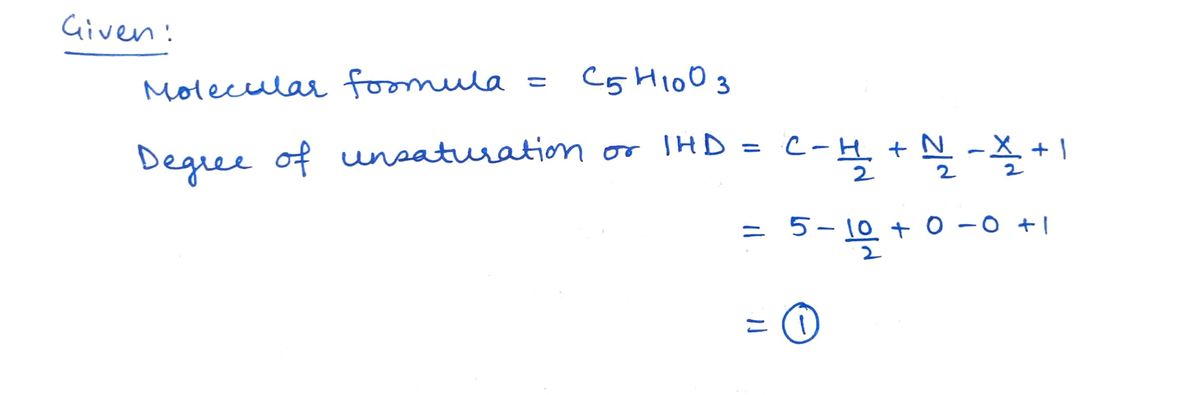 Given:
Molecular formula = C5H10O3
Degree of unsaturation or IHD = C - H/2 + N/2 - X/2 + 1
= 5 - 10/2 + 0 - 0 + 1
= ①